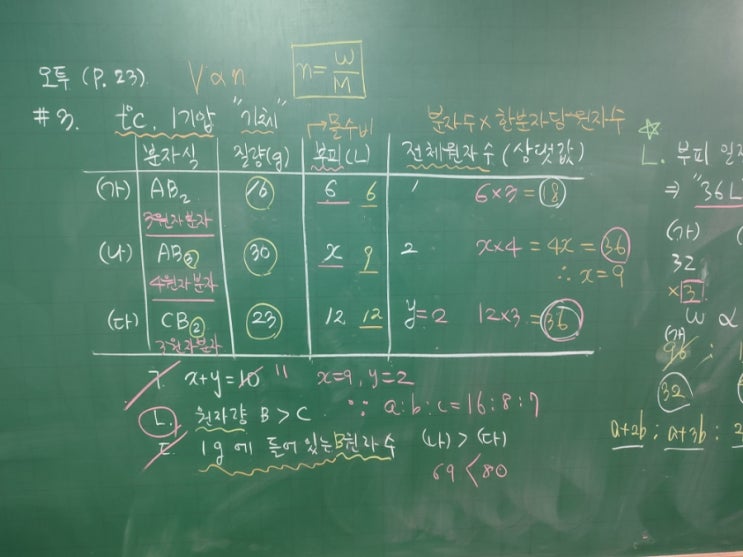 오투 (P. 23)
V ∝ n
n = W/M
#3. t℃. 1기압 "기체"
→몰수비
분자수 × 한분자당 원자수
분자식 질량(g) 부피(L) 전체원자수 (상댓값)
(가) AB₂ 16 6 6 1 6×3 = 18
3원자분자
(나) AB₃ 30 x 9 2 x×4 = 4x = 36
4원자분자
∴ x = 9
(다) CB₂ 23 12 12 y=2 12×3 = 36
3원자분자
ㄱ. x+y = 10 11 x=9, y=2
ㄴ. 원자량 B > C ∵ a:b:c = 16:8:7
ㄷ. 1g에 들어있는 B원자수 (나) > (다)
69 < 80
ㄴ. 부피
⇒ "36L
(가)
32
×3
W ∝
(가)
96 :
32
a+2b : a+3b : 2